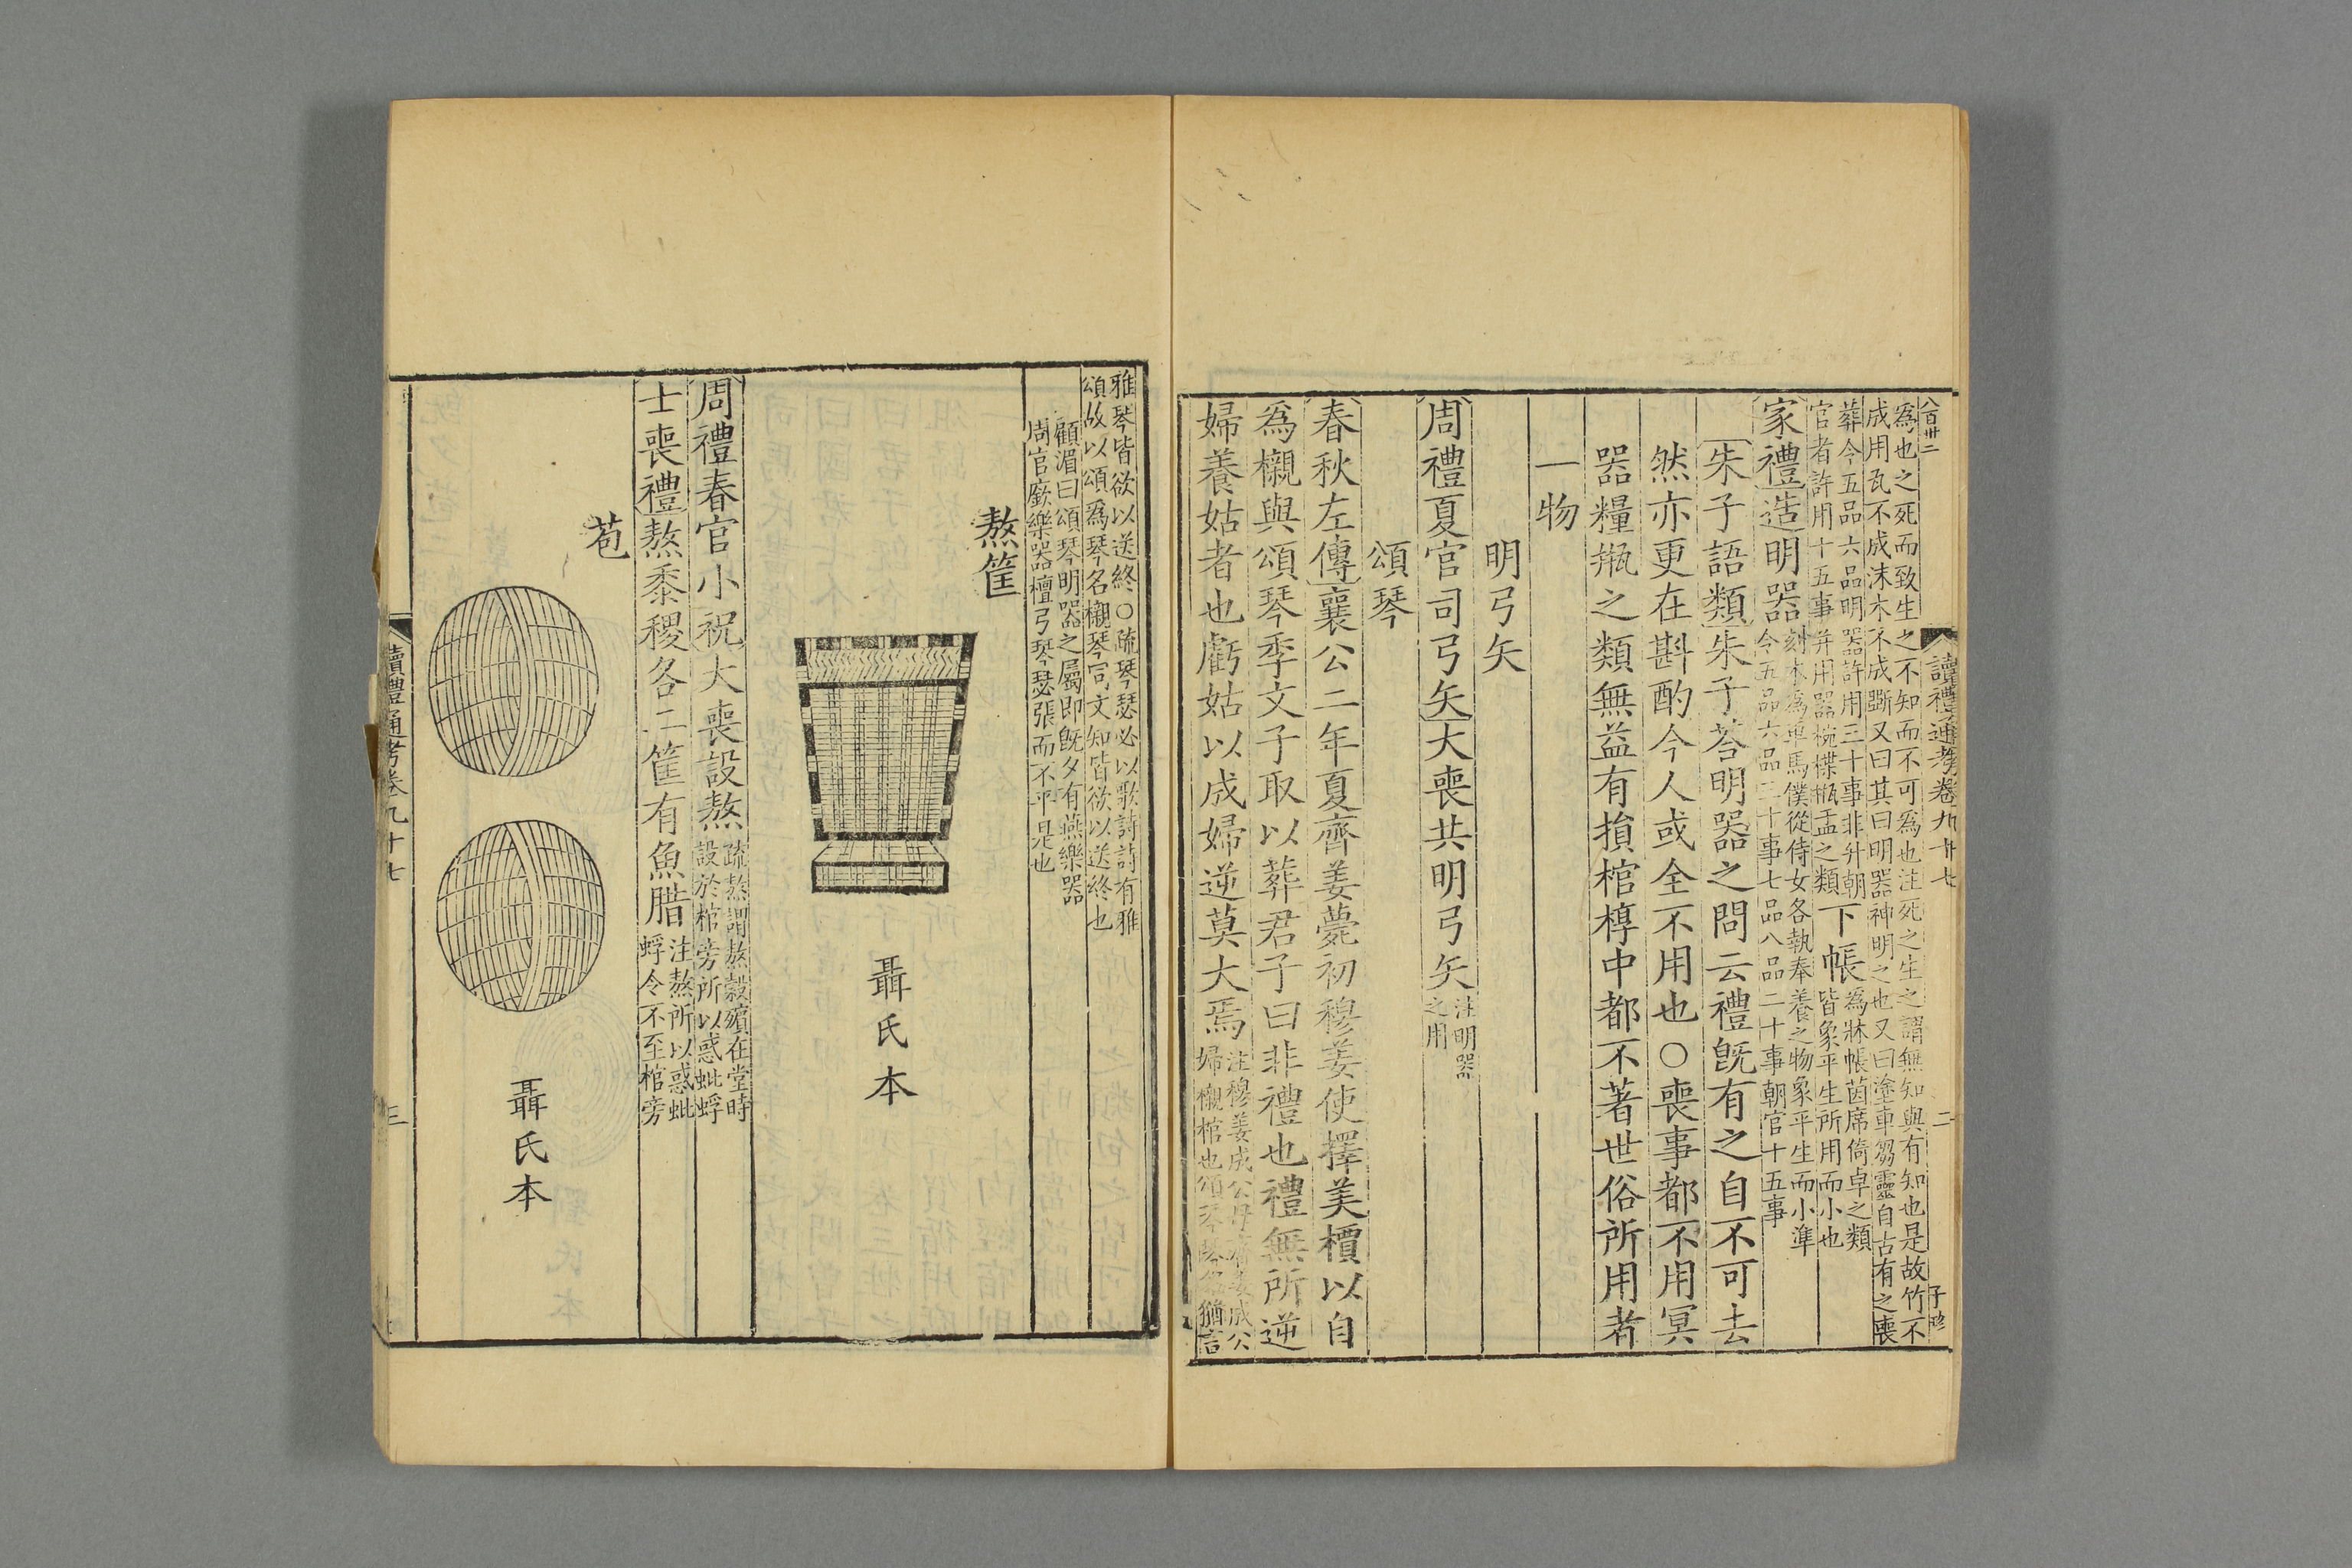 八百卅二
讀禮通考卷九十七
二
子珍
為也之死而致生之不知而不可為也注死之生之謂無知與有知也是故竹不
成用瓦不成沬木不成斲又曰其曰明器神明之也又曰塗車芻靈自古有之喪
葬令五品六品明器許用三十事非升朝
官者許用十五事并用器椀楪瓶盂之類
下帳
為牀帳茵席倚卓之類
皆象平生所用而小也
家禮造明器
刻木為車馬僕從侍女各執奉養之物象平生而小準
令五品六品三十事七品八品二十事朝官十五事
朱子語類朱子荅明器之問云禮既有之自不可去
然亦更在斟酌今人或全不用也○喪事都不用冥
器糧瓶之類無益有損棺槨中都不著世俗所用者
一物
明弓矢
周禮夏官司弓矢大喪共明弓矢
注明器
之用
頌琴
春秋左傳襄公二年夏齊姜薨初穆姜使擇美檟以自
為櫬與頌琴季文子取以葬君子曰非禮也禮無所逆
婦養姑者也虧姑以成婦逆莫大焉
注穆姜成公母齊姜成公
婦櫬棺也頌琴琴名猶言
雅琴皆欲以送終○疏琴瑟必以歌詩詩有雅
頌故以頌為琴名櫬琴同文知皆欲以送終也
顧湄曰頌琴明器之屬即既夕有燕樂器
周官廞樂器檀弓琴瑟張而不平是也
熬筐
聶氏本
周禮春官小祝大喪設熬
疏熬謂熬穀殯在堂時
設於棺旁所以惑蚍蜉
士喪禮熬黍稷各二筐有魚腊
注熬所以惑蚍
蜉令不至棺旁
苞
聶氏本
讀禮通考卷九十七
三